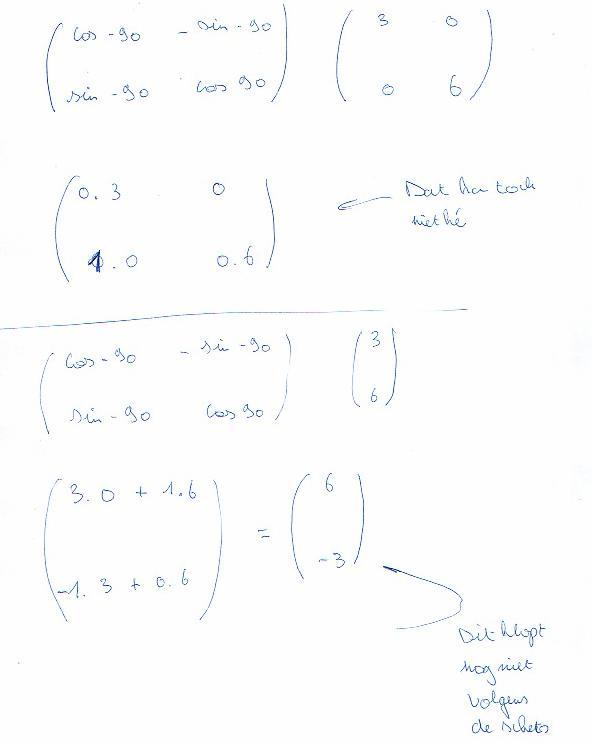 cos -90 - sin -90 3 0
sin -90 cos 90 0 6
0.3 0
1.0 0.6
Dat kan toch
niet hé
cos -90 - sin -90 3
sin -90 cos 90 6
3.0 + 1.6 = 6
-1.3 + 0.6 -3
Dit klopt
nog niet
volgens
de schets